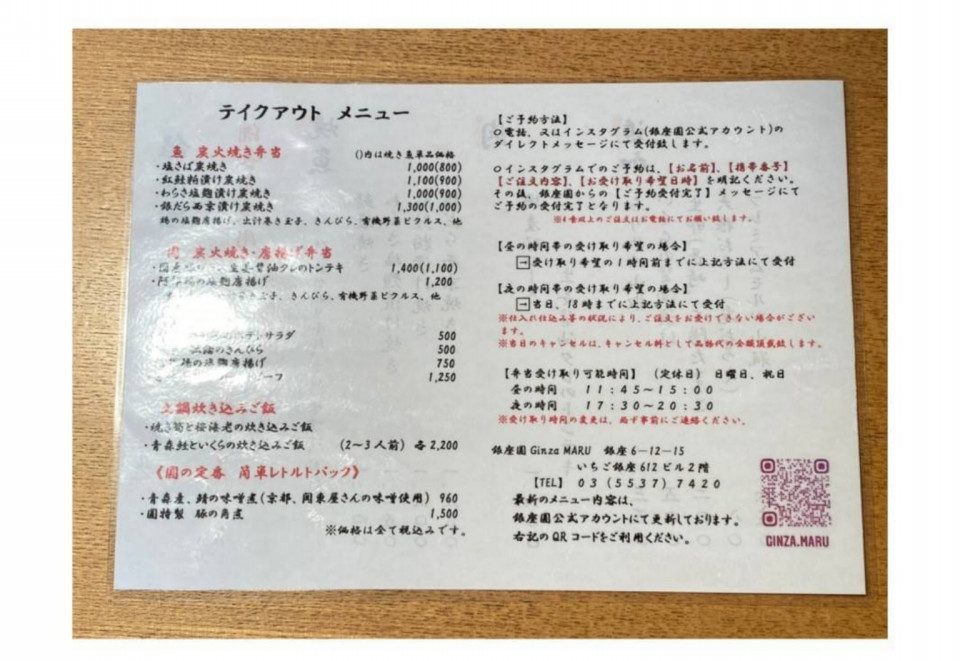 テイクアウト メニュー
魚 炭火焼き弁当 ()内は焼き魚単品価格
・塩さば炭焼き 1,000(800)
・紅鮭粕漬け炭焼き 1,100(900)
・わらさ塩麹漬け炭焼き 1,000(900)
・銀だら西京漬け炭焼き 1,300(1,000)
鶏の塩麹唐揚げ、出汁巻き玉子、きんぴら、有機野菜ピクルス、他
肉 炭火焼き・唐揚げ弁当
醤油タレのトンテキ 1,400(1,100)
塩麹唐揚げ 1,200
玉子、きんぴら、有機野菜ピクルス、他
サラダ 500
のきんぴら 500
塩麹唐揚げ 750
ーフ 1,250
土鍋炊き込みご飯
・焼き筍と桜海老の炊き込みご飯
・青森鮭といくらの炊き込みご飯 (2〜3人前) 各2,200
《圓の定番 簡単レトルトパック》
・青森産、鯖の味噌煮(京都、関東屋さんの味噌使用) 960
・圓特製 豚の角煮 1,500
※価格は全て税込みです。
【ご予約方法】
○電話、又はインスタグラム(銀座圓公式アカウント)の
ダイレクトメッセージにて受付致します。
○インスタグラムでのご予約は、【お名前】、【携帯番号】
【ご注文内容】、【お受け取り希望日時】を明記ください。
その後、銀座圓からの【ご予約受付完了】メッセージにて
ご予約の受付完了となります。
※4食以上のご注文はお電話にてお願い致します。
【昼の時間帯の受け取り希望の場合】
→受け取り希望の1時間前までに上記方法にて受付
【夜の時間帯の受け取り希望の場合】
→当日、18時までに上記方法にて受付
※仕入れ仕込み等の状況により、ご注文をお受けできない場合がござい
ます。
※当日のキャンセルは、キャンセル料として品物代の全額頂戴致します。
【弁当受け取り可能時間】 (定休日) 日曜日、祝日
昼の時間 11:45〜15:00
夜の時間 17:30〜20:30
※受け取り時間の変更は、必ず事前にご連絡ください。
銀座圓 Ginza MARU 銀座 6−12−15
いちご銀座612ビル2階
【TEL】 03 (5537) 7420
最新のメニュー内容は、
銀座圓公式アカウントにて更新しております。
右記のQRコードをご利用ください。
GINZA.MARU